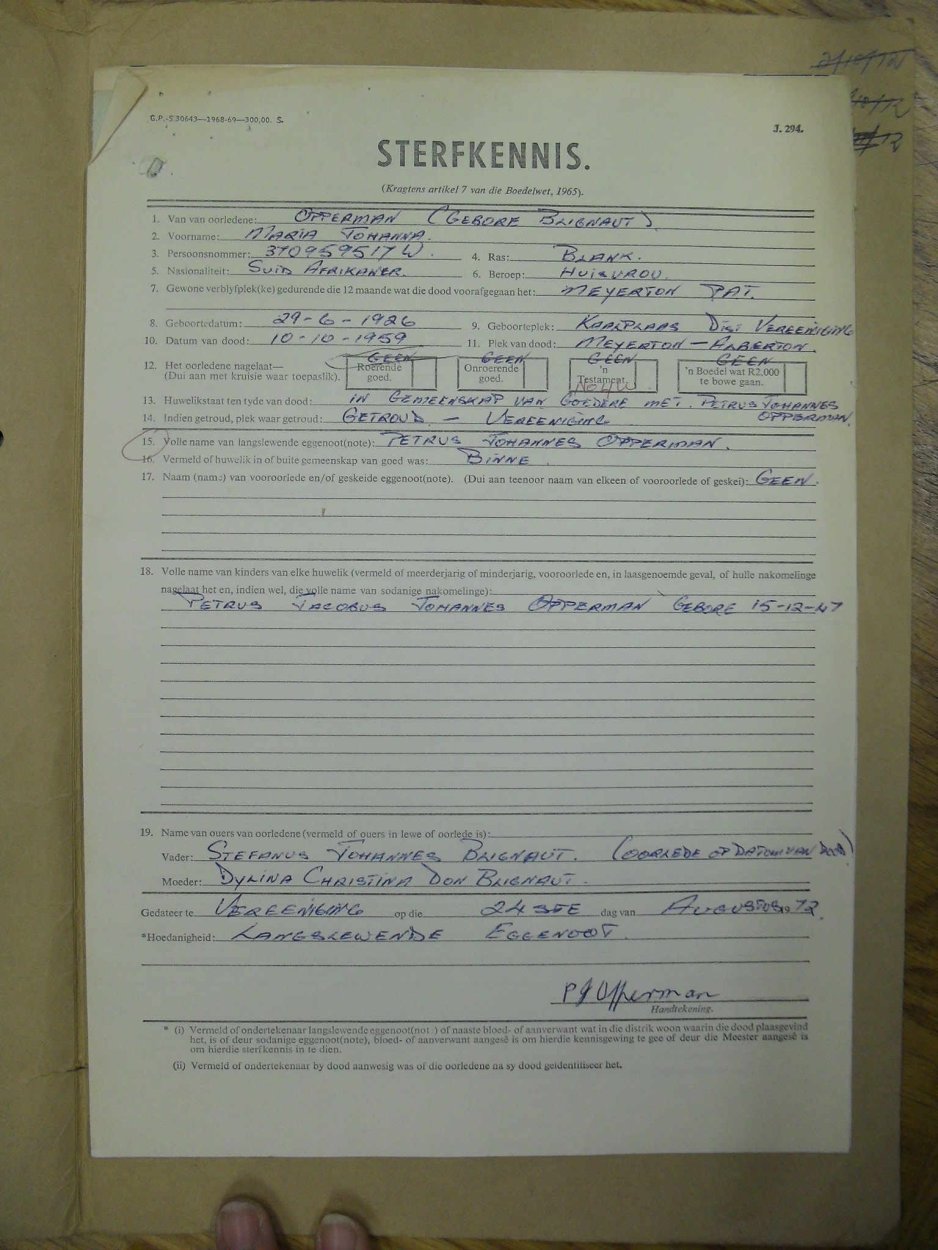 G.P.-S.30643—1968-69—300,00. S.
J. 294.
STERFKENNIS.
(Kragtens artikel 7 van die Boedelwet, 1965).
1. Van van oorledene: OPPERMAN (GEBORE BLIGNAUT)
2. Voorname: MARIA JOHANNA.
3. Persoonsnommer: 370959517 W. 4. Ras: BLANK.
5. Nasionaliteit: SUID AFRIKANER. 6. Beroep: HUISVROU.
7. Gewone verblyfplek(ke) gedurende die 12 maande wat die dood voorafgegaan het: MEYERTON
8. Geboortedatum: 29-6-1926 9. Geboorteplek: KAALPLAAS DIST VEREENIGING
10. Datum van dood: 10-10-1959 11. Plek van dood: MEYERTON — ALBERTON.
GEEN GEEN GEEN GEEN
12. Het oorledene nagelaat— Roerende Onroerende 'n 'n Boedel wat R2,000
(Dui aan met kruisie waar toepaslik). goed. goed. Testament. te bowe gaan.
13. Huwelikstaat ten tyde van dood: IN GEMEENSKAP VAN GOEDERE MET. PETRUS JOHANNES
OPPERMAN.
14. Indien getroud, plek waar getroud: GETROUD — VEREENIGING
15. Volle name van langslewende eggenoot(note): PETRUS JOHANNES OPPERMAN.
16. Vermeld of huwelik in of buite gemeenskap van goed was: BINNE.
17. Naam (nam:) van vooroorlede en/of geskeide eggenoot(note). (Dui aan teenoor naam van elkeen of vooroorlede of geskei): GEEN.
18. Volle name van kinders van elke huwelik (vermeld of meerderjarig of minderjarig, vooroorlede en, in laasgenoemde geval, of hulle nakomelinge
nagelaat het en, indien wel, die volle name van sodanige nakomelinge):
PETRUS JACOBUS JOHANNES OPPERMAN GEBORE 15-12-47
19. Name van ouers van oorledene (vermeld of ouers in lewe of oorlede is):
Vader: STEFANUS JOHANNES BLIGNAUT. (OORLEDE OP DATUM VAN DOOD)
Moeder: DYLINA CHRISTINA DON BLIGNAUT.
Gedateer te VEREENIGING op die 24STE dag van AUGUSTUS 1972.
*Hoedanigheid: LANGSLEWENDE EGGENOOT.
P J Opperman
Handtekening.
* (i) Vermeld of ondertekenaar langslewende eggenoot(not ) of naaste bloed- of aanverwant wat in die distrik woon waarin die dood plaasgevind
het, is of deur sodanige eggenoot(note), bloed- of aanverwant aangesê is om hierdie kennisgewing te gee of deur die Meester aangesê is
om hierdie sterfkennis in te dien.
(ii) Vermeld of ondertekenaar by dood aanwesig was of die oorledene na sy dood geïdentifiseer het.